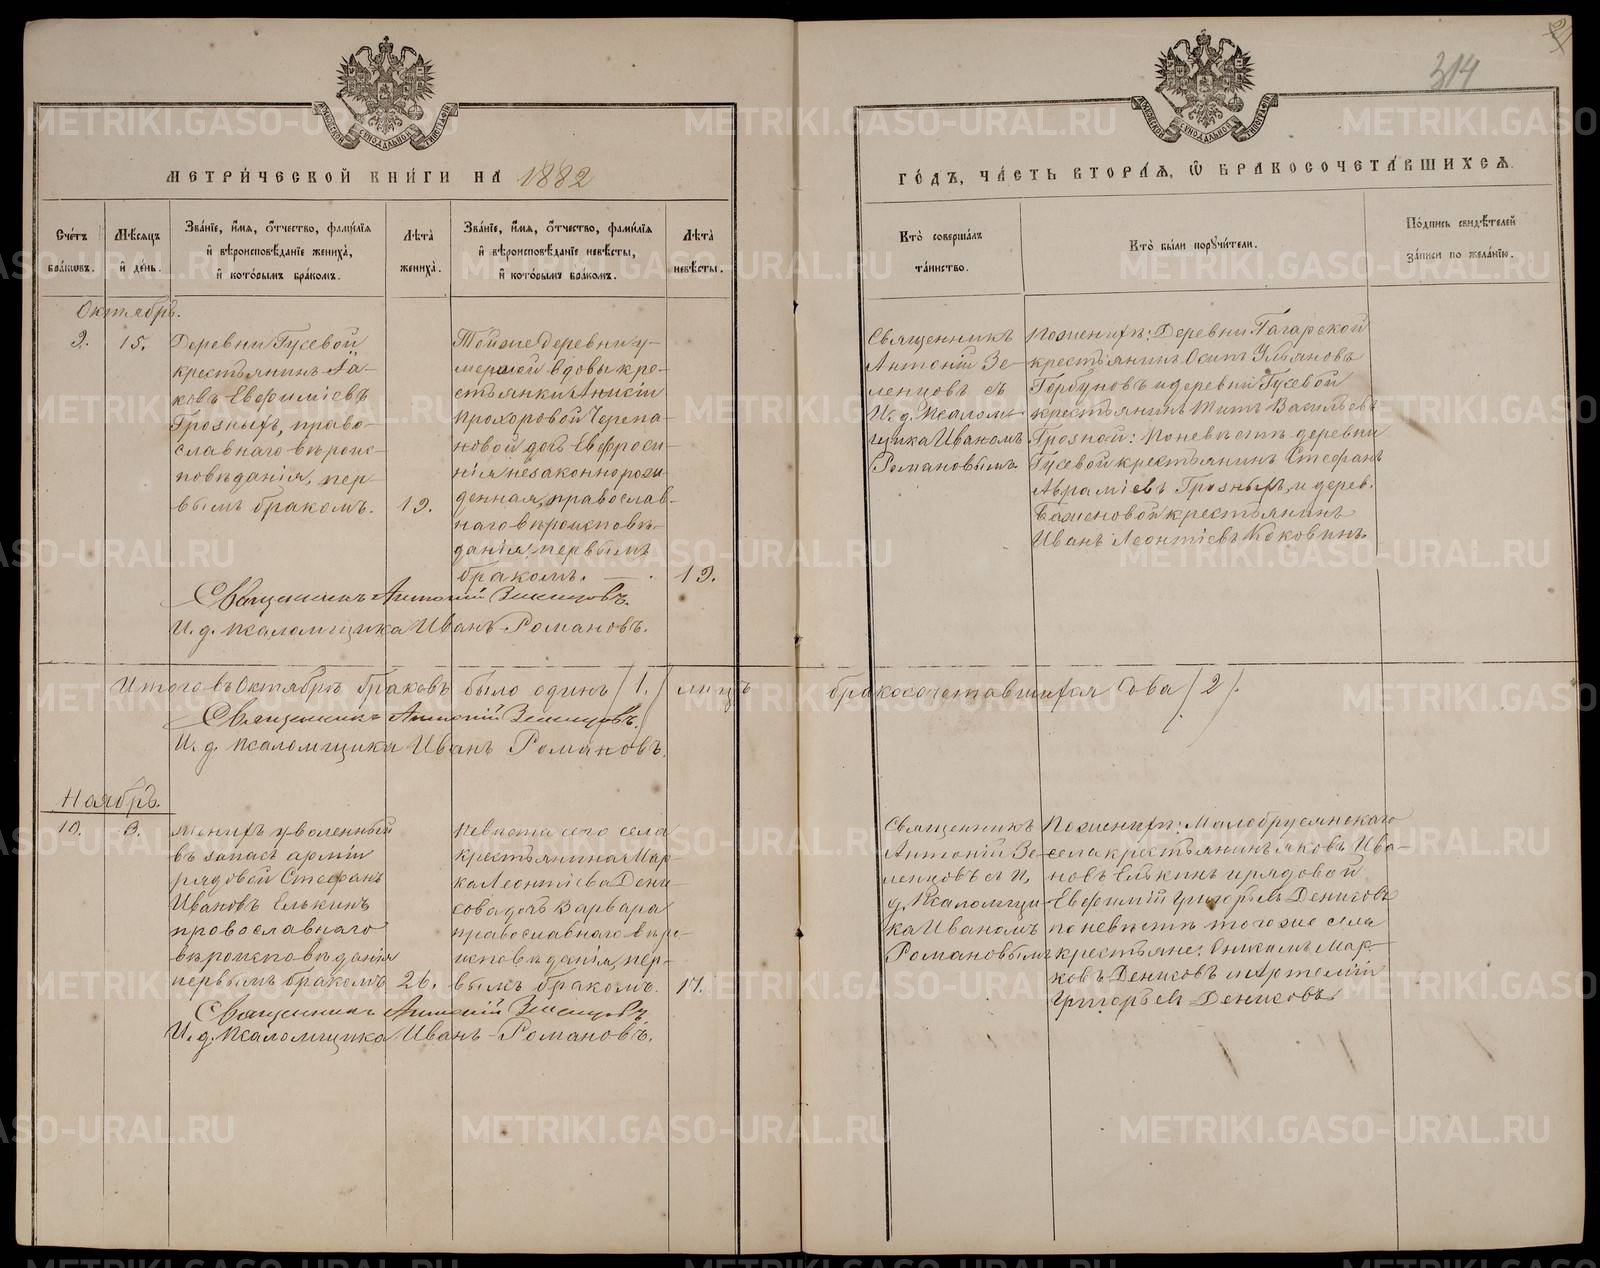 314
МЕТРИЧЕСКОЙ КНИГИ НА 1882
ГОДЪ, ЧАСТЬ ВТОРАЯ, Ѡ БРАКОСОЧЕТАВШИХСЯ.
Счетъ браковъ.
Мѣсяцъ и день.
Званіе, имя, отчество, фамилія
и вѣроисповѣданіе жениха,
и которымъ бракомъ.
Лѣта
жениха.
Званіе, имя, отчество, фамилія
и вѣроисповѣданіе невѣсты,
и которымъ бракомъ.
Лѣта
невѣсты.
Кто совершалъ
таинство.
Кто были поручители.
Подпись свидѣтелей
записи по желанію.
Октябрь.
9. 15.
Деревни Гусевой
крестьянинъ Іа-
ковъ Евфиміевъ
Грозныхъ, право-
славнаго вѣроис-
повѣданія, пер-
вымъ бракомъ. 19.
Тойже деревни у-
мершей вдовы кре-
стьянки Анисіи
Прохоровой Черепа-
новой дочь Евфроси-
нія незаконнорож-
денная, православ-
наго вѣроисповѣ-
данія, первымъ
бракомъ. — 19.
Священникъ
Антоній Зе-
ленцовъ съ
И. д. Псалом-
щика Иваномъ
Романовымъ.
По женихѣ: Деревни Гагарской
крестьянинъ Осипъ Ульяновъ
Горбуновъ и деревни Гусевой
крестьянинъ Титъ Васильевъ
Грозной: По невѣстѣ деревни
Гусевой крестьянинъ Стефанъ
Авраміевъ Грозныхъ, и дерев.
Баженовой крестьянинъ
Иванъ Леонтіевъ Коковинъ.
Священникъ Антоній Зеленцовъ.
И. д. Псаломщика Иванъ Романовъ.
Итого въ Октябрѣ браковъ было одинъ /1./ лицъ бракосочетавшихся два /2/.
Священникъ Антоній Зеленцовъ.
И. д. Псаломщика Иванъ Романовъ.
Ноябрь.
10. 3.
Женихъ уволенный
въ запасъ арміи
рядовой Стефанъ
Ивановъ Елькинъ
провославнаго
вѣроисповѣданія
первымъ бракомъ 26.
Невѣста сего села
крестьянина Мар-
ка Леонтіева Дени-
сова дочь Варвара
православнаго вѣро-
исповѣданія, пер-
вымъ бракомъ. 17.
Священникъ
Антоній Зе-
ленцовъ съ И,
д. Псаломщи-
ка Иваномъ
Романовымъ
По женихѣ: Малобрусянскаго
села крестьянинъ Яковъ Ива-
новъ Елькинъ и рядовой
Евфимій Григорьевъ Денисовъ
по невѣстѣ того же села
крестьяне: Никита Мар-
ковъ Денисовъ и Артемій
Григорьевъ Денисовъ
Священникъ Антоній Зеленцовъ
И. д. Псаломщика Иванъ Романовъ.
METRIKI.GASO-URAL.RU